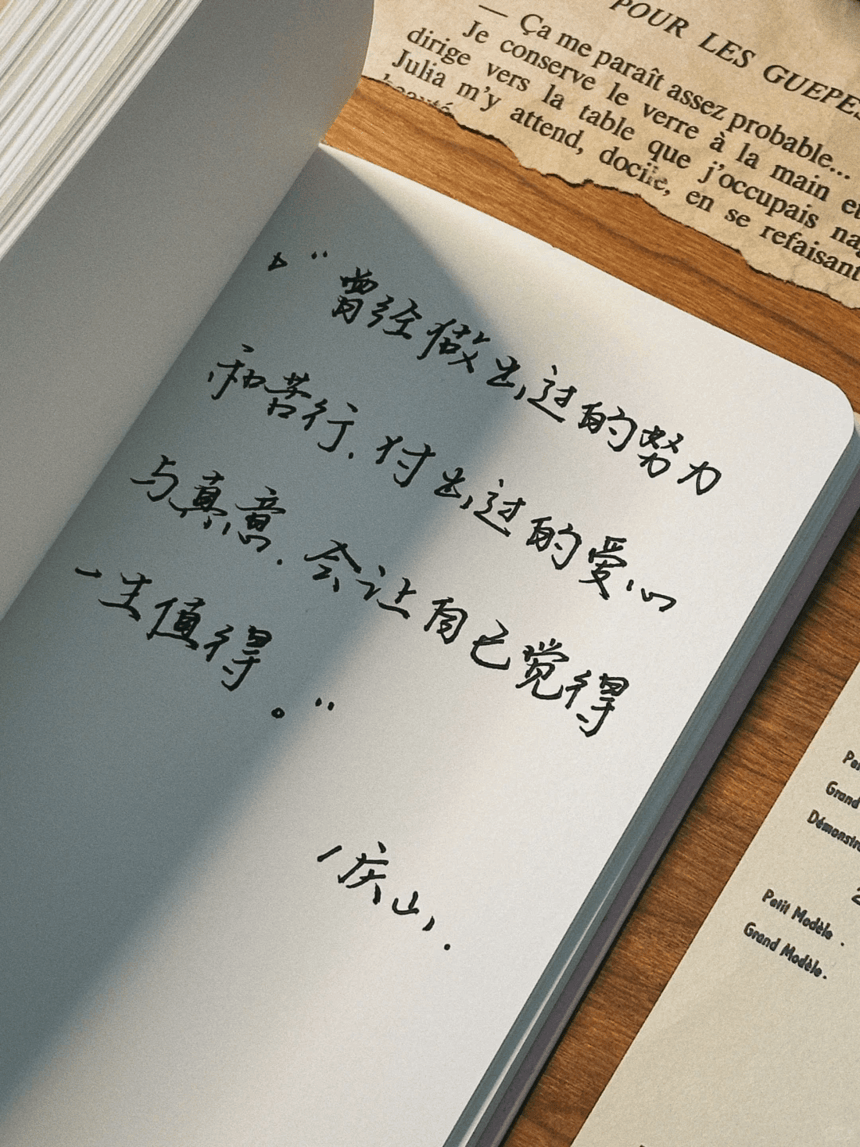 POUR LES GUEPES
— Ça me paraît assez probable...
Je conserve le verre à la main et
dirige vers la table que j'occupais
Julia m'y attend, docile, en se refaisant
"曾经做出过的努力
和苦行.付出过的爱心
与真意.会让自己觉得
一生值得。"
/庆山.
Grand
Petit Modèle.
Grand Modèle.